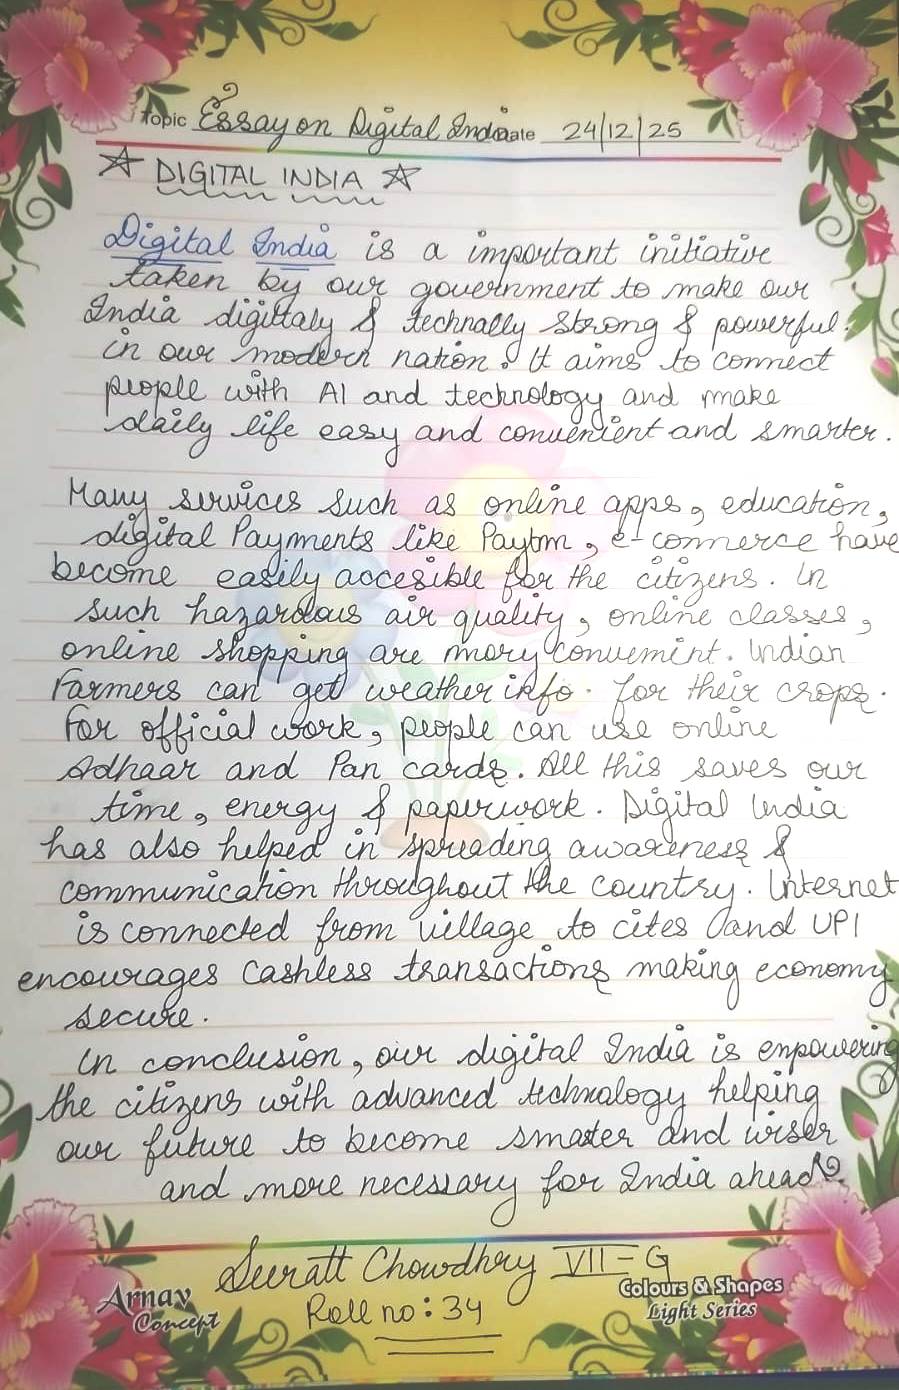 Topic Essay on Digital India Date 24/12/25
☆ DIGITAL INDIA ☆
Digital India is a important initiative
taken by our government to make our
India digittaly & technally strong & powerful.
in our modern nation. It aims to connect
people with AI and technology and make
daily life easy and convenient and smarter.
Many services such as online apps, education,
digital Payments like Paytm, e-commerce have
become easily accesible for the citizens. In
such hazardous air quality, online classes,
online shopping are mory convemint. Indian
Farmers can get weather info. for their crops.
For official work, people can use online
Adhaar and Pan cards. All this saves our
time, energy & paperwork. Digital India
has also helped in spreading awareness &
communication throughout the country. Internet
is connected from village to cites and UPI
encourages cashless transactions making economy
secure.
In conclusion, our digital India is enpowering
the citizens with advanced technology helping
our future to become smater and wiser
and more necessary for India ahead.
Suratt Chowdhry VII-G
Roll no: 34
Arnav
Concept
Colours & Shapes
Light Series